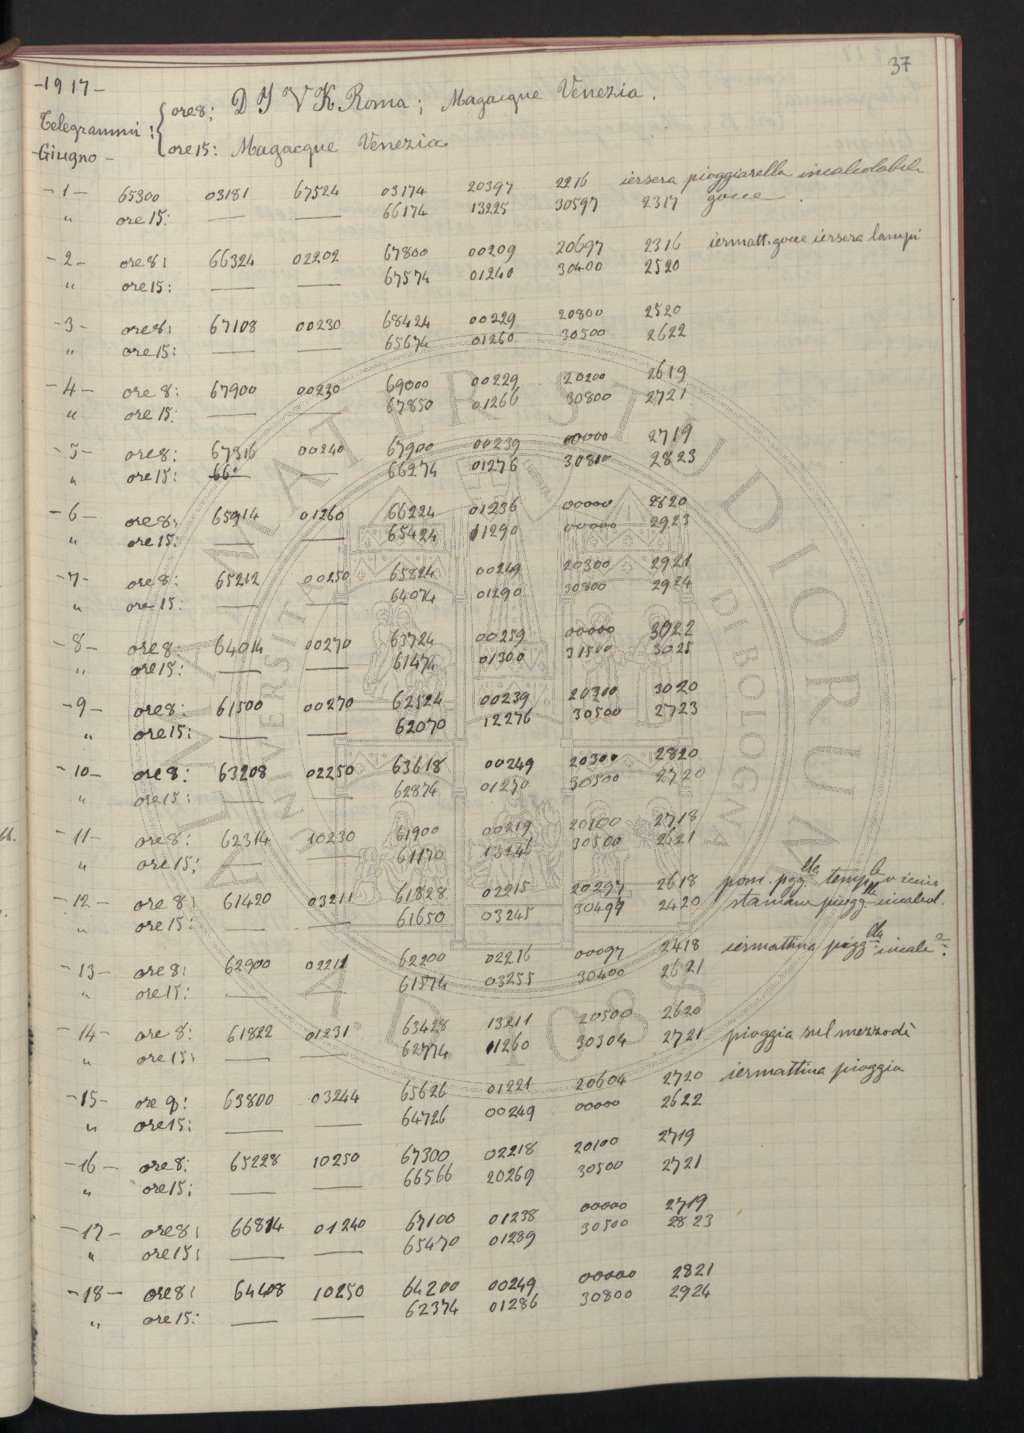 37
-1917-
Telegrammi: { ore 8: D Y V K Roma; Magacque Venezia.
Giugno - ore 15: Magacque Venezia
-1- 65300 03181 67524 03174 20397 2216 iersera pioggiarella incalcolabile
" ore 15: — — 66174 13225 30597 2317 gocce.
-2- ore 8: 66324 02202 67800 00209 20697 2316 iermatt. gocce iersera lampi
" ore 15: — — 67574 01240 30400 2520
-3- ore 8: 67108 00230 68424 00229 20800 2520
" ore 15: — — 65674 01260 30500 2622
-4- ore 8: 67900 00230 69000 00229 20200 2619
" ore 15: — — 67850 01266 30800 2721
-5- ore 8: 67316 00240 67900 00239 00000 2719
" ore 15: 66 — 66274 01276 30810 2823
-6- ore 8: 65914 01260 66224 01236 00000 2820
" ore 15: — — 65424 11290 00000 2923
-7- ore 8: 65212 00250 65824 00249 20300 2921
" ore 15: — — 64074 01290 30800 2924
-8- ore 8: 64014 00270 63724 00259 00000 3022
" ore 15: — — 61474 01300 31500 3025
-9- ore 8: 61500 00270 62524 00239 20300 3020
" ore 15: — — 62070 12276 30500 2723
-10- ore 8: 63208 02250 63618 00249 20300 2820
" ore 15: — — 62874 01270 30500 2720
-11- ore 8: 62314 10230 61900 00219 20100 2718
" ore 15: — — 61170 13246 30500 2621
-12- ore 8: 61420 03211 61828 02915 20297 2618 pom. piogglla temple vicini
" ore 15: — — 61650 03245 30497 2420 stamane piogglla incalcol.
-13- ore 8: 62900 02211 62200 02216 00097 2418 iermattina piogglla incalce.
" ore 15: — — 61574 03255 30400 2621
-14- ore 8: 61822 01231 63428 13211 20500 2620
" ore 15: — — 62774 11260 30304 2721 pioggia sul mezzodì
-15- ore 8: 63800 03244 65626 01221 20604 2720 iermattina pioggia
" ore 15: — — 64726 00249 00000 2622
-16- ore 8: 65228 10250 67300 02218 20100 2719
" ore 15: — — 66566 20269 30500 2721
-17- ore 8: 66814 01240 67100 01238 00000 2719
" ore 15: — — 65470 01289 30500 2823
-18- ore 8: 64408 10250 64200 00249 00000 2821
" ore 15: — — 62374 01286 30800 2924
ALMA MATER STUDIORUM
UNIVERSITÀ DI BOLOGNA
A.D. 1088